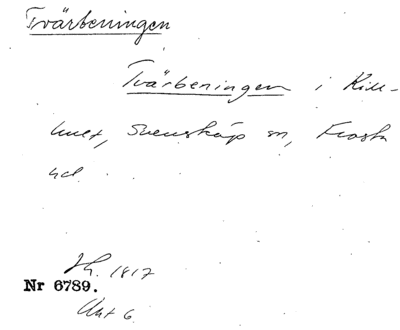 Tvärbeningen
Tvärbeningen i Kill-
hult, Svensköp sn, Frosta
hd.
Jh. 1817
Nr 6789.
Akt 6